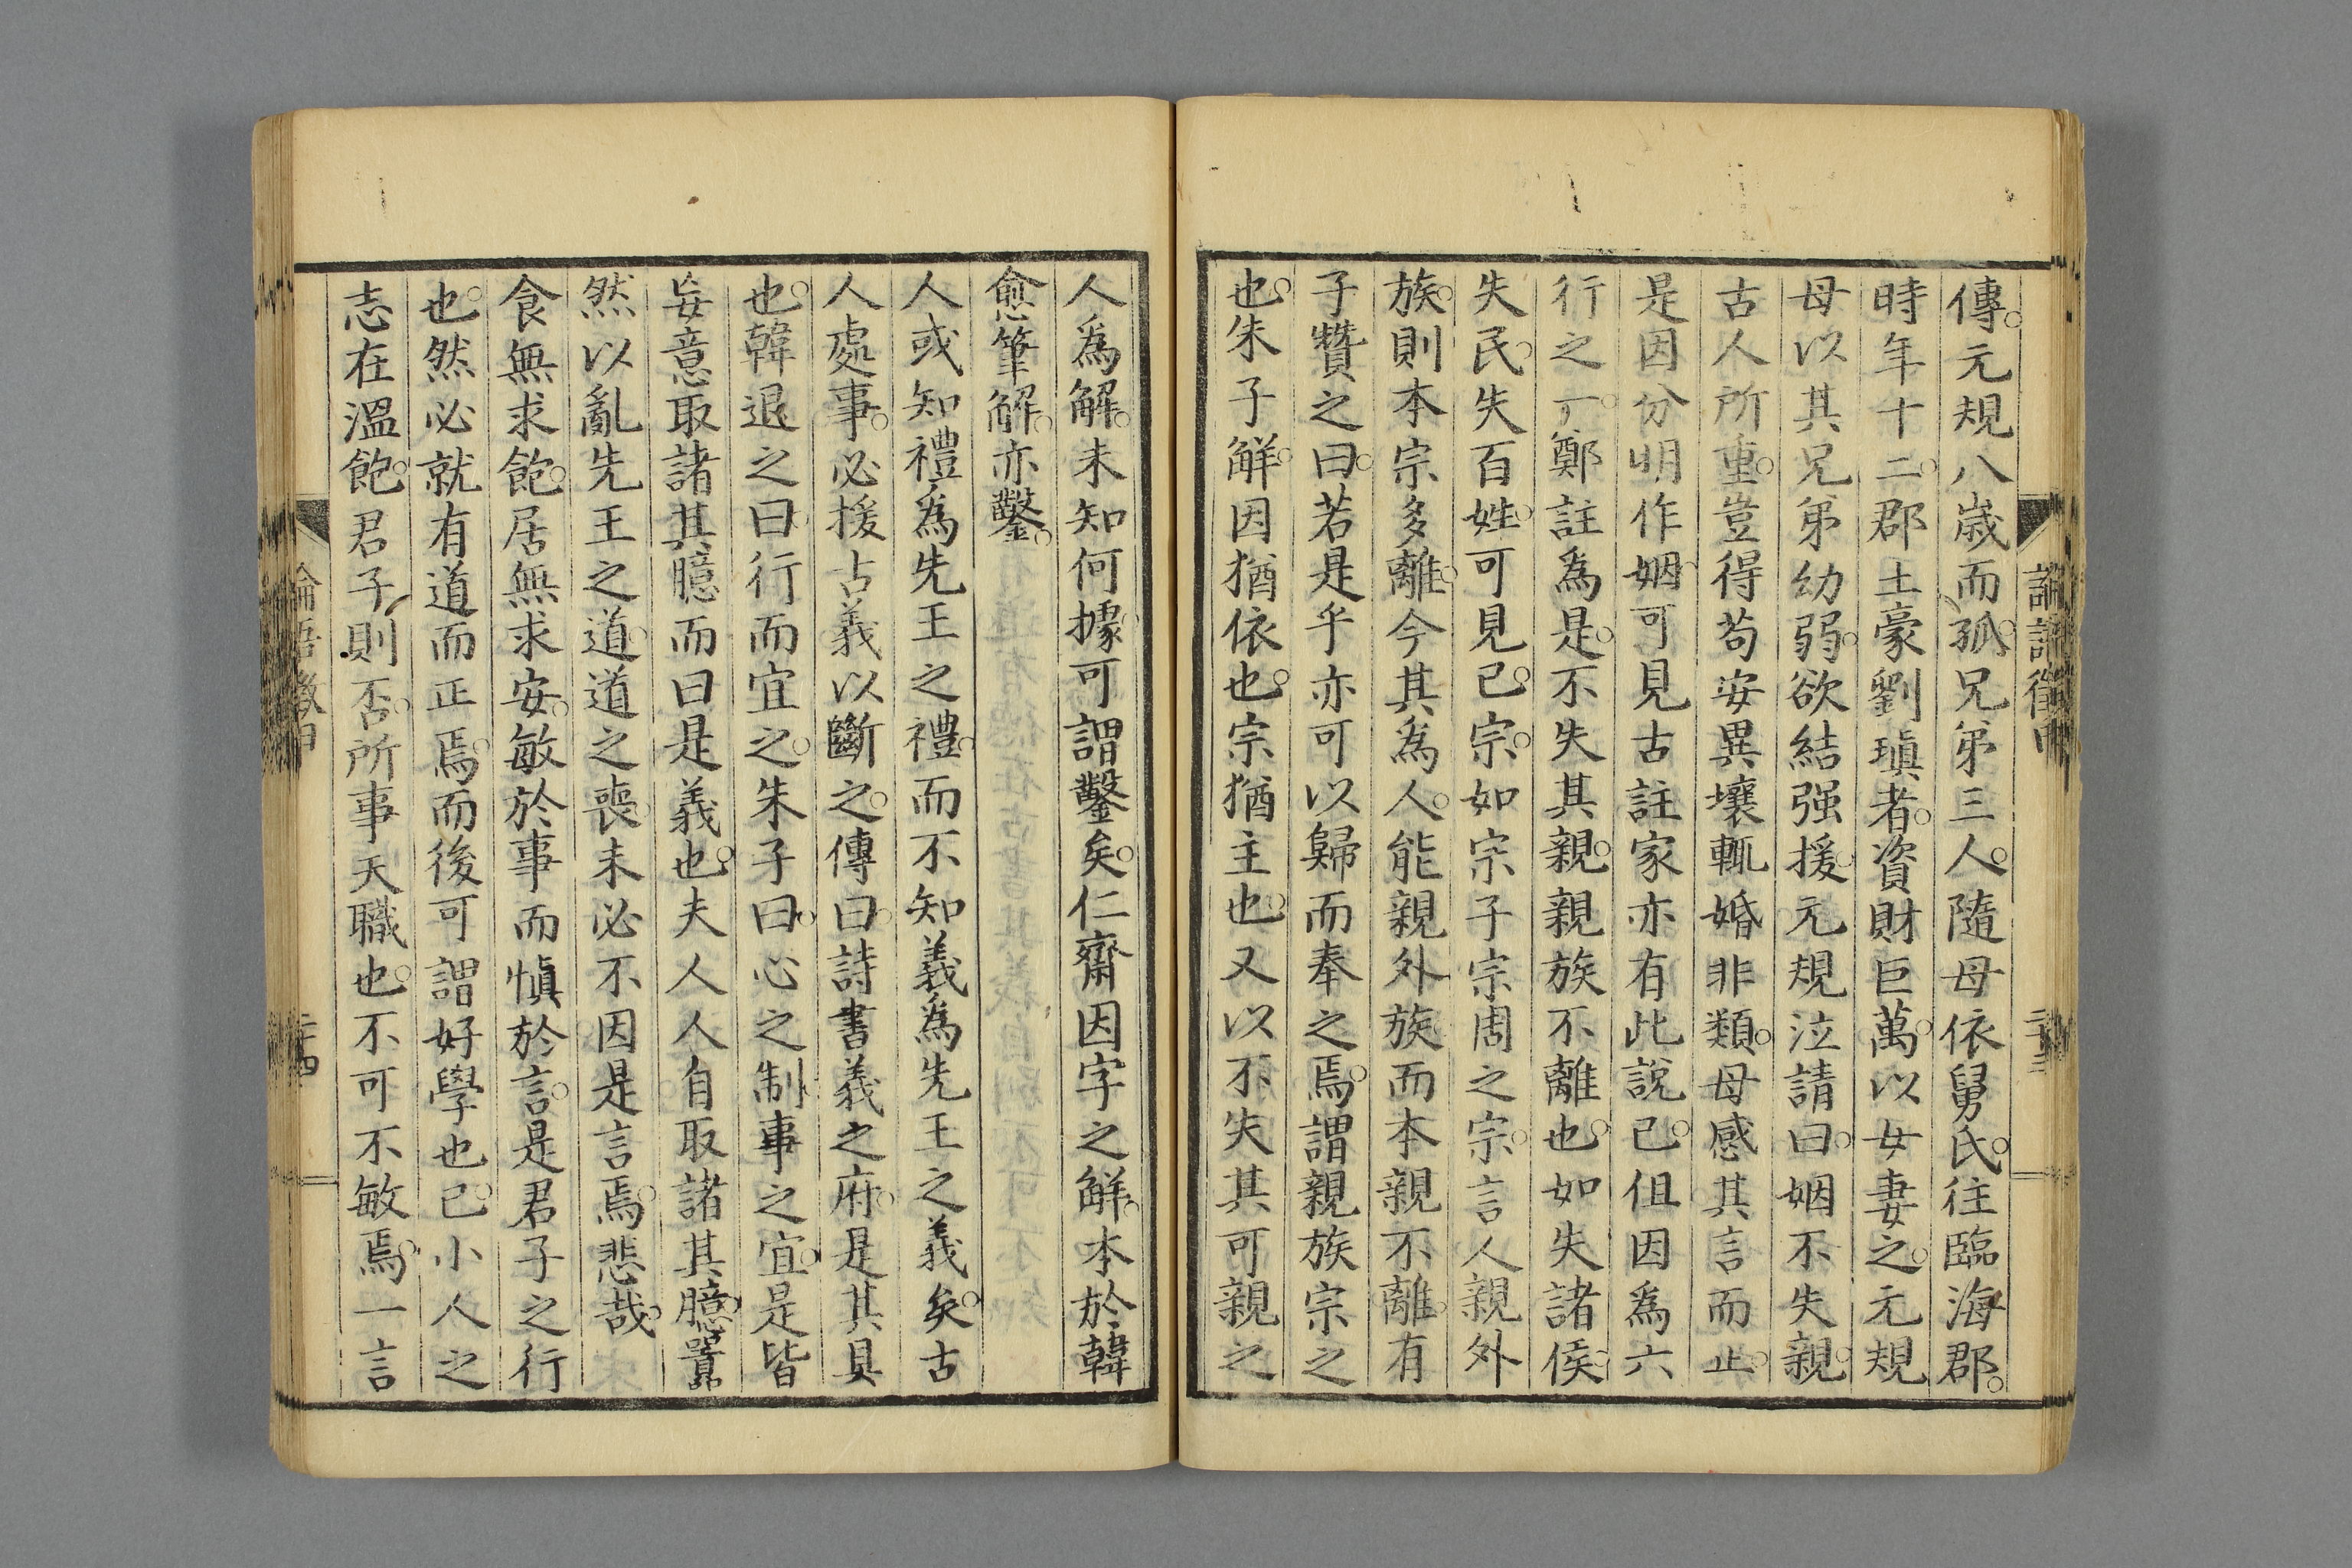 傳。元規八歳而孤。兄弟三人。隨母依舅氏。往臨海郡。
時年十二。郡土豪劉瑱者。資財巨萬。以女妻之。元規
母以其兄弟幼弱。欲結强援。元規泣請曰。姻不失親。
古人所重。豈得苟安異壤輒婚非類。母感其言而止。
是因分明作姻。可見古註家亦有此說已。但因爲六
行之一。鄭註爲是。不失其親。親族不離也。如失諸侯。
失民。失百姓。可見已。宗。如宗子宗周之宗。言人親外
族。則本宗多離。今其爲人。能親外族。而本親不離。有
子贊之曰。若是乎亦可以歸而奉之焉。謂親族宗之
也。朱子解。因猶依也。宗猶主也。又以不失其可親之
人爲解。未知何據。可謂鑿矣。仁齋因字之解。本於韓
愈筆解。亦鑿。
人或知禮爲先王之禮。而不知義爲先王之義矣。古
人處事。必援古義以斷之。傳曰。詩書義之府。是其具
也。韓退之曰。行而宜之。朱子曰。心之制。事之宜。是皆
妄意取諸其臆而曰是義也。夫人人自取諸其臆。囂
然以亂先王之道。道之喪。未必不因是言焉。悲哉。
食無求飽。居無求安。敏於事而愼於言。是君子之行
也。然必就有道而正焉。而後可謂好學也已。小人之
志在溫飽。君子則否。所事天職也。不可不敏焉。一言
論語徵甲
二十三
論語徵甲
二十四